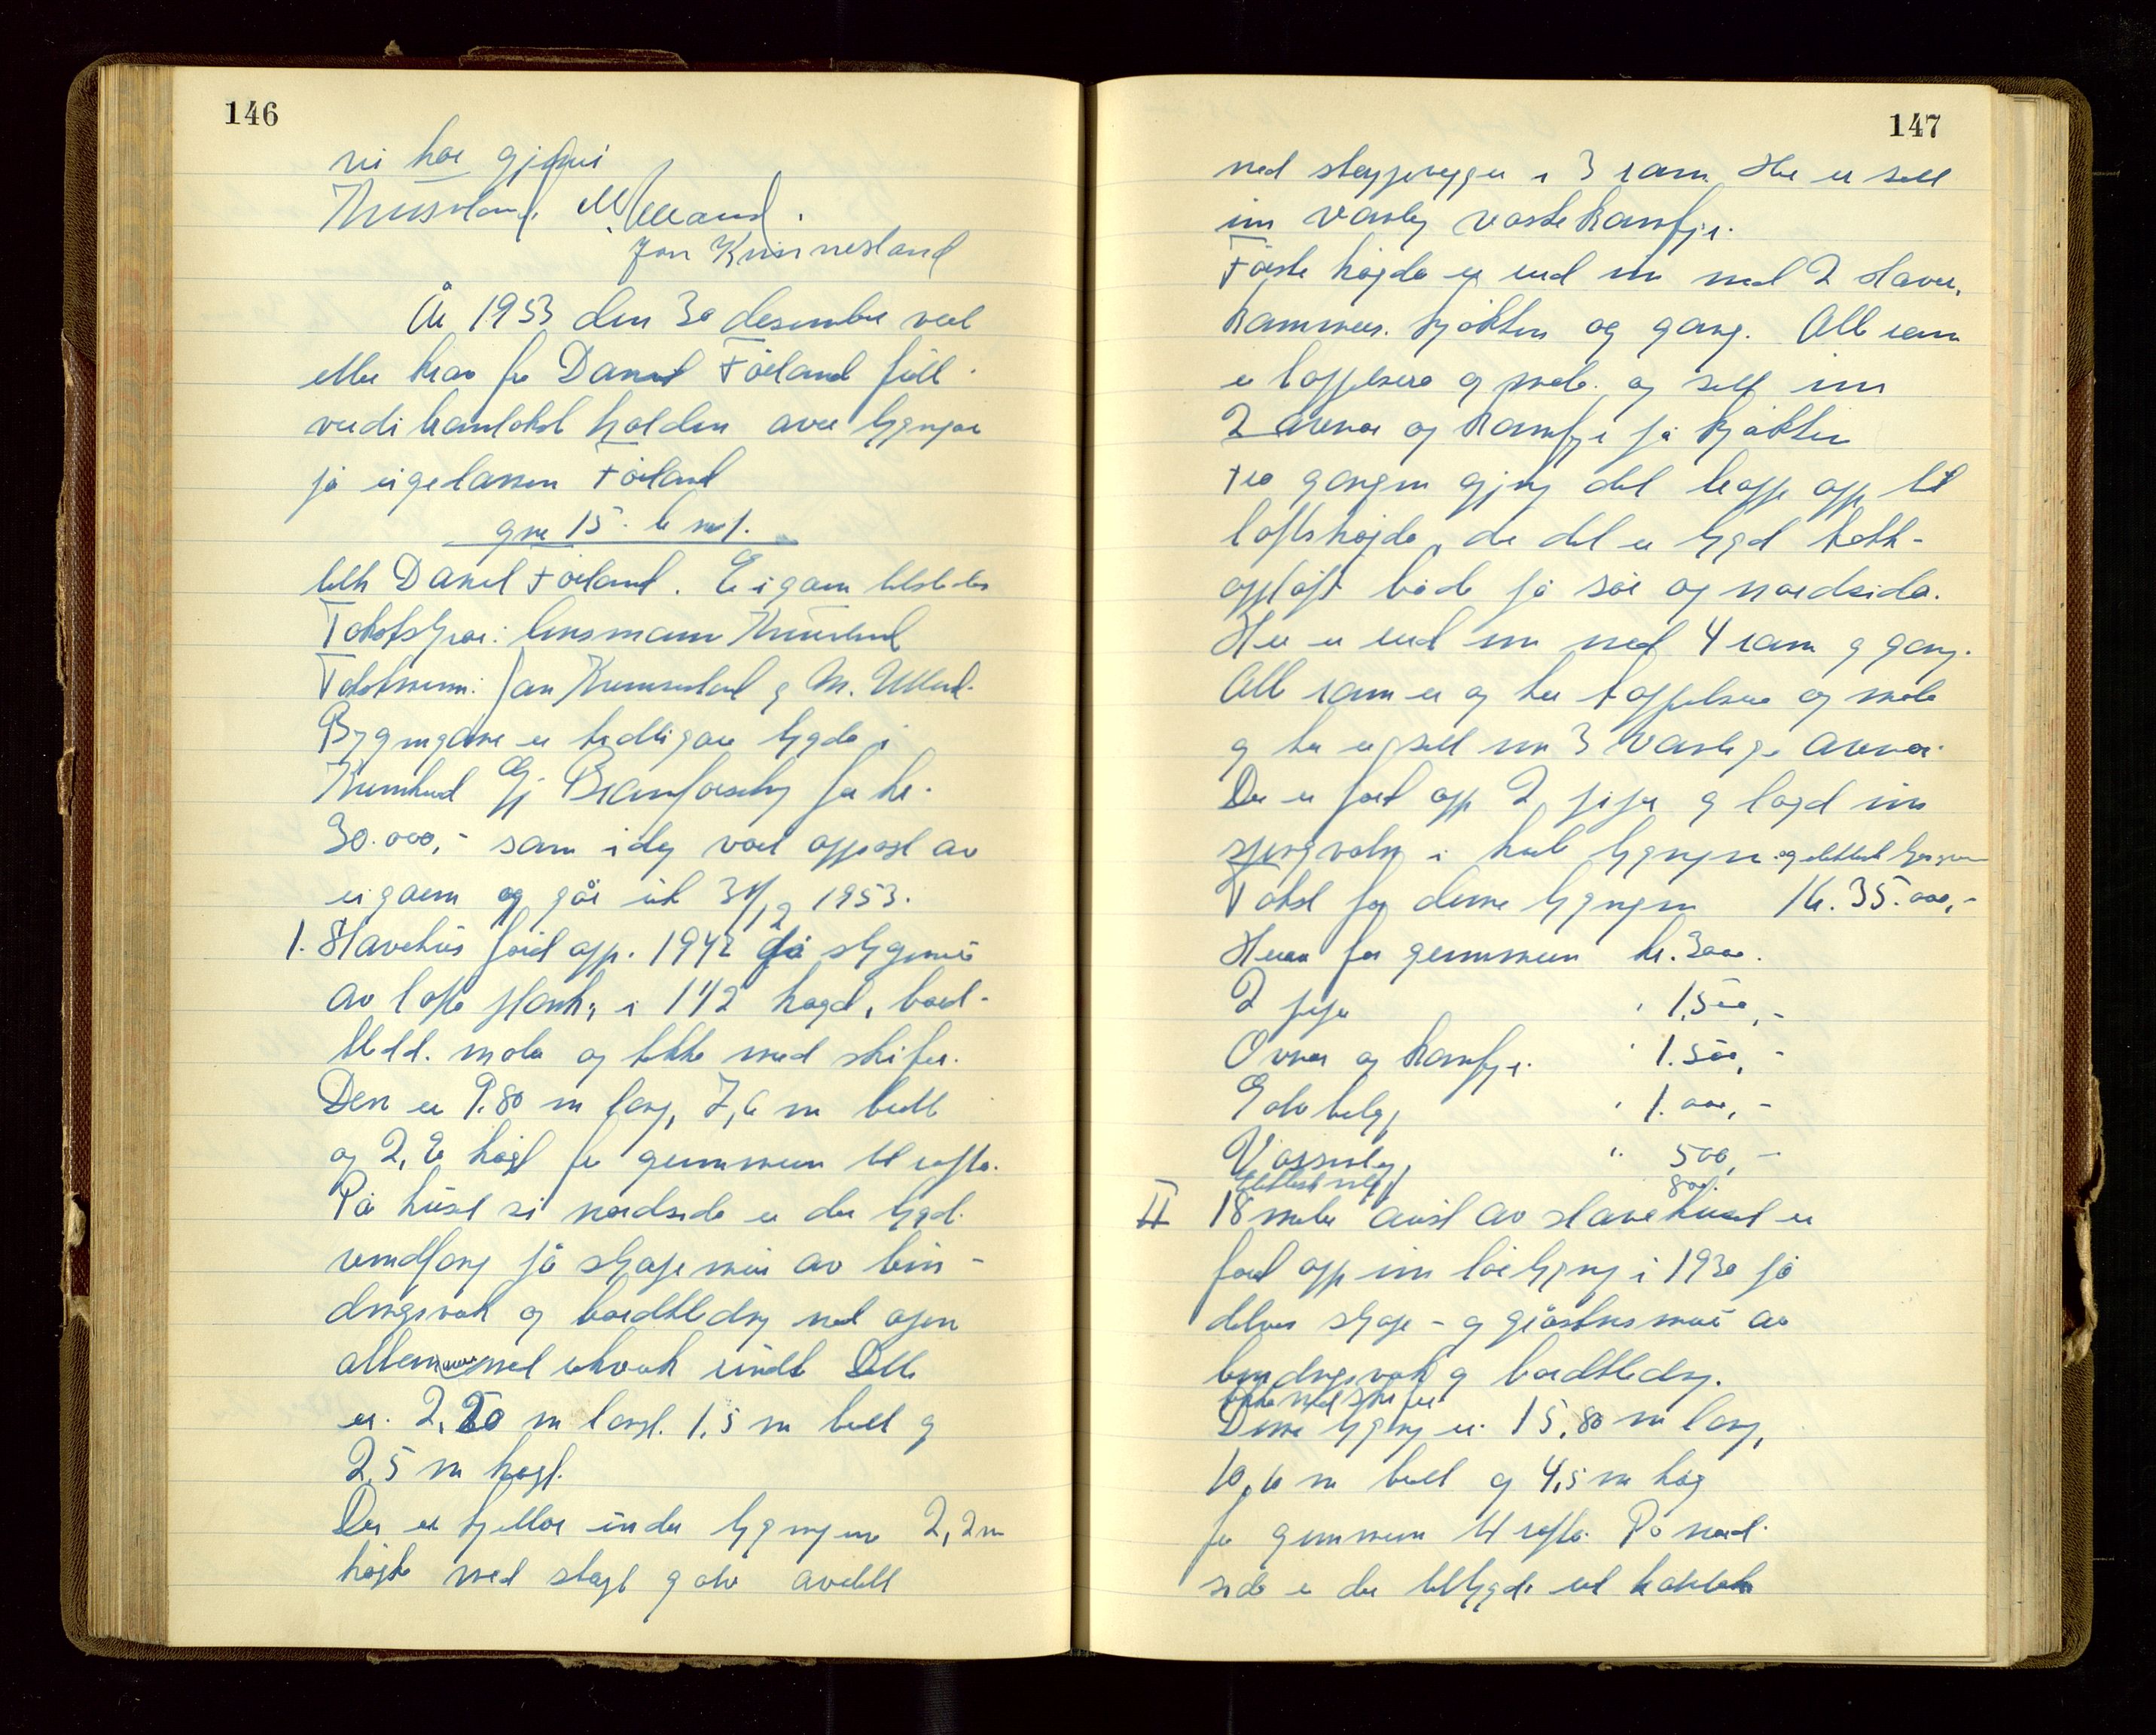 146
vi har gjort
Kvinnesland. M. Ulland.
Jon Kvinnesland
År 1953 den 30 desember vart
etter krav fra Daniel Förland full
verdi branntakst halden over bygningar
på eigedommen Förland
gnr 15. b nr 1.
tilh Daniel Förland. Eigaren tilstede
Takststyrar: lensmann Kvinnesland
Takstmenn: Jon Kvinnesland og M. Ulland.
Bygningane er tidligare trygda i
Gj Brannforsikring for kr.
30.000,- som idag vart oppsagt av
eigaren og går ut 31/12 1953.
1. Stavehus ført opp. 1942 på støypemur
av lafta plank, i 1 1/2 høgd, bord-
kledd. mala og tekka med skifer.
Den er 9.80 m lang, 7,6 m breitt
og 2,6 høgt fra grunnmuren til rafta.
På huset si nordside er der bygd
vindfang på støypemur av bin-
dingsverk og bordkledning med open
altan med rekkverk rundt Dette
er. 2,20 m langt. 1,5 m breitt og
2,5 m høgt.
Der er kjellar under bygningen 2,2 m
høgde med støypt golv avdelt
147
med støypevegger i 3 rom Her er sett
inn vanleg vaskekomfyr.
Første høgda er innreidd med 2 staver,
kammers. kjøkken og gang. Alle rom
er troppelsera og mala. og sett inn
2 omnar og komfyr på kjøkken
Fra gangen gjeng det trapp opp til
loftshøgda, der det er bygd takk-
oppløft både på sør og nordsida.
Her er innreidd med 4 rom og gang.
Alle rom er og her troppelsera og mala
og her er sett inn 3 vanlege omnar.
Der er ført opp 2 pipe og lagd inn
i heile bygningen og elektrisk
Takst for denne bygningen kr. 35.000,-
Herav for grunnmuren kr. 3000.
2 pipe " 1.500,-
Ovnar og komfyr. " 1.500,-
Golvbelegg " 1.000,-
Vassinlegg " 500,-
Elektrisk innlegg 800.
II 18 meter aust av stavehuset er
ført opp ein løebygning i 1930 på
delvis støype- og gråsteinsmur av
bindingsverk og bordkledning.
tekka med skifer
Denne bygning er 15,80 m lang,
10,6 m breitt og 4,5 m høg
fra grunnmuren til rafta. På nord-
sida er der tilbygd eit